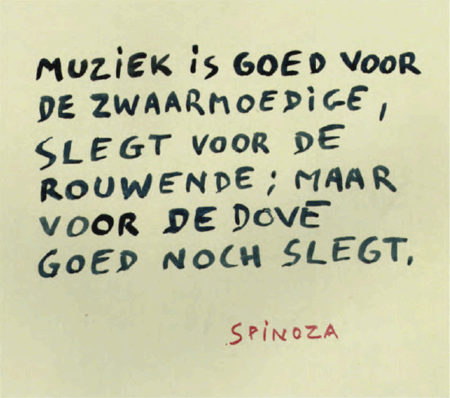 MUZIEK iS GOED VOOR
DE ZWAARMOEDIGE,
SLEGT VOOR DE
ROUWENDE; MAAR
VOOR DE DOVE
GOED NOCH SLEGT.
SPiNOZA